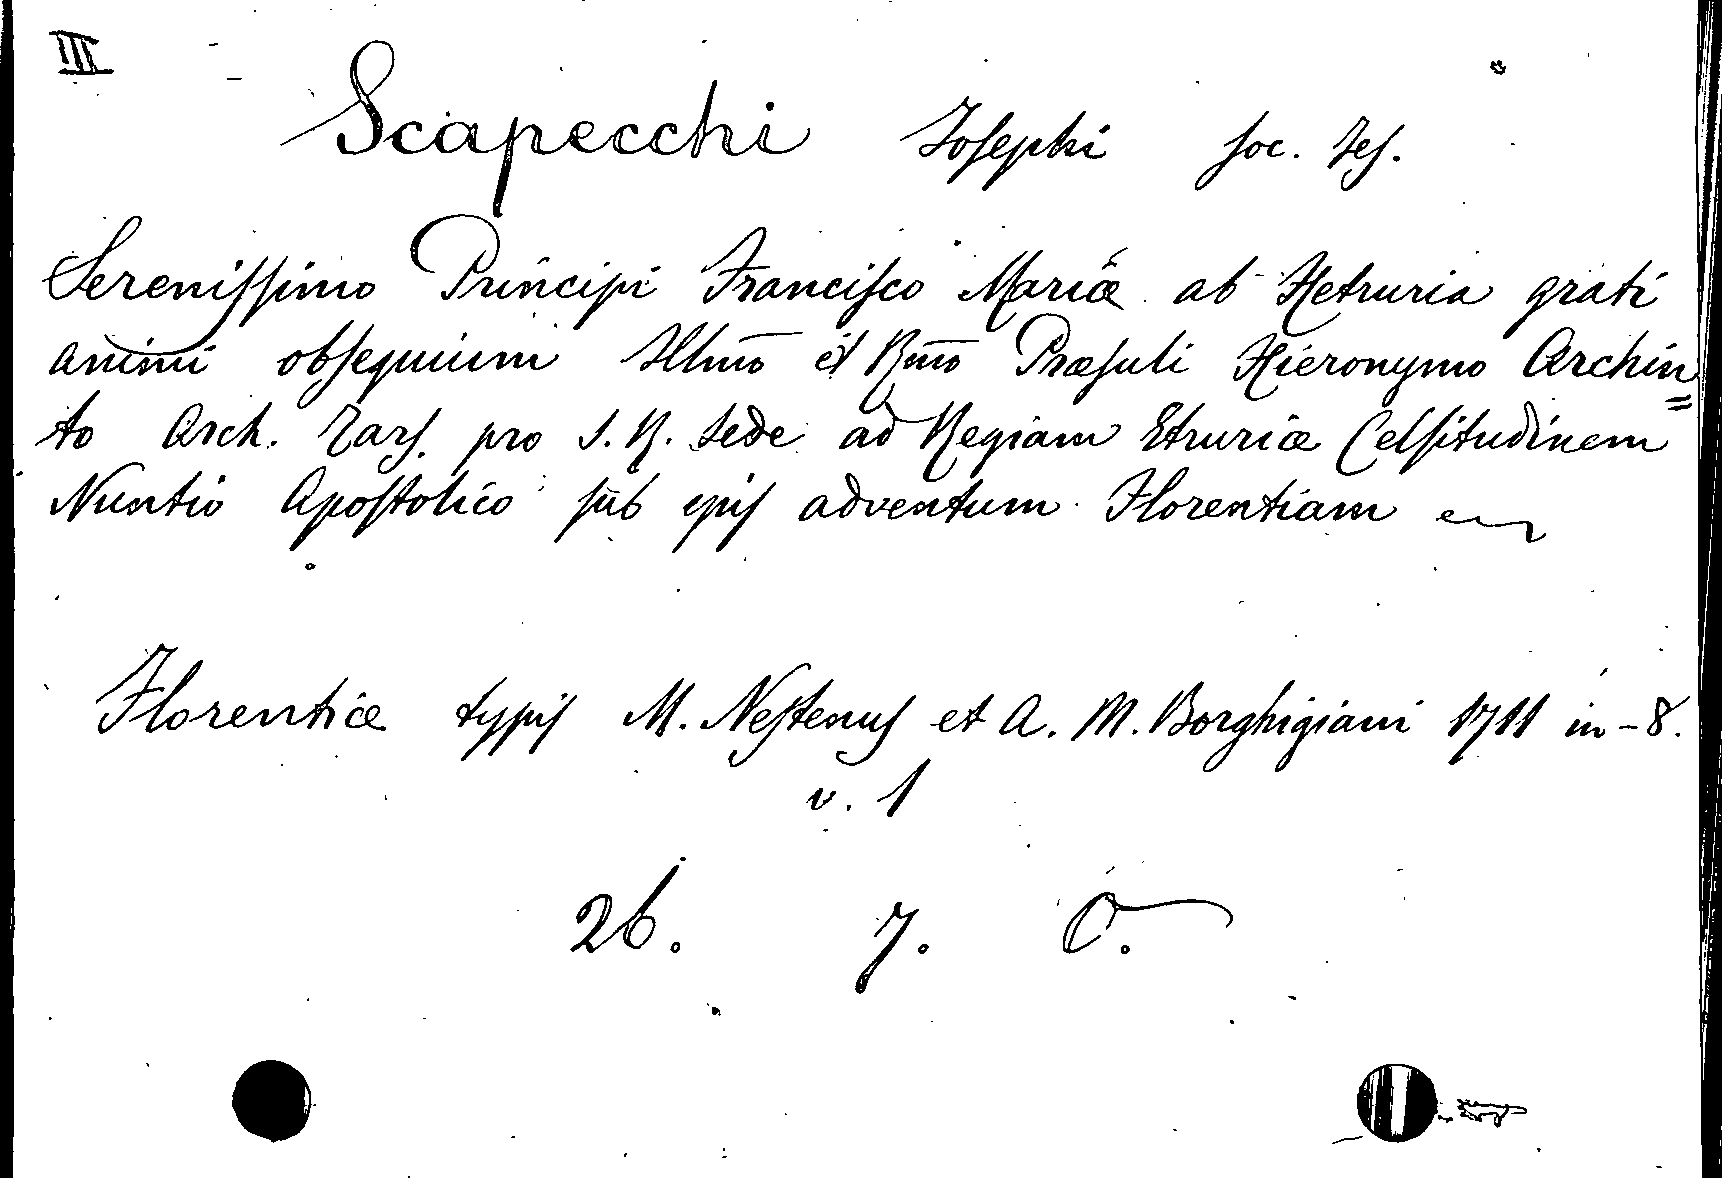 III
Scapecchi Josephi Soc. Jes.
Serenissimo Principi Francisco Mariæ ab Hetruria grati
animi obsequium Illmo et Rmo Præsuli Hieronymo Archin=
to Arch. Tars. pro S. R. Sede ad Regiam Etruriæ Celsitudinem
Nuntio Apostolico sub ejus adventum Florentiam
Florentiæ typis M. Nestenus et A. M. Borghigiani 1711 in-8.
v. 1
26. 7. C.